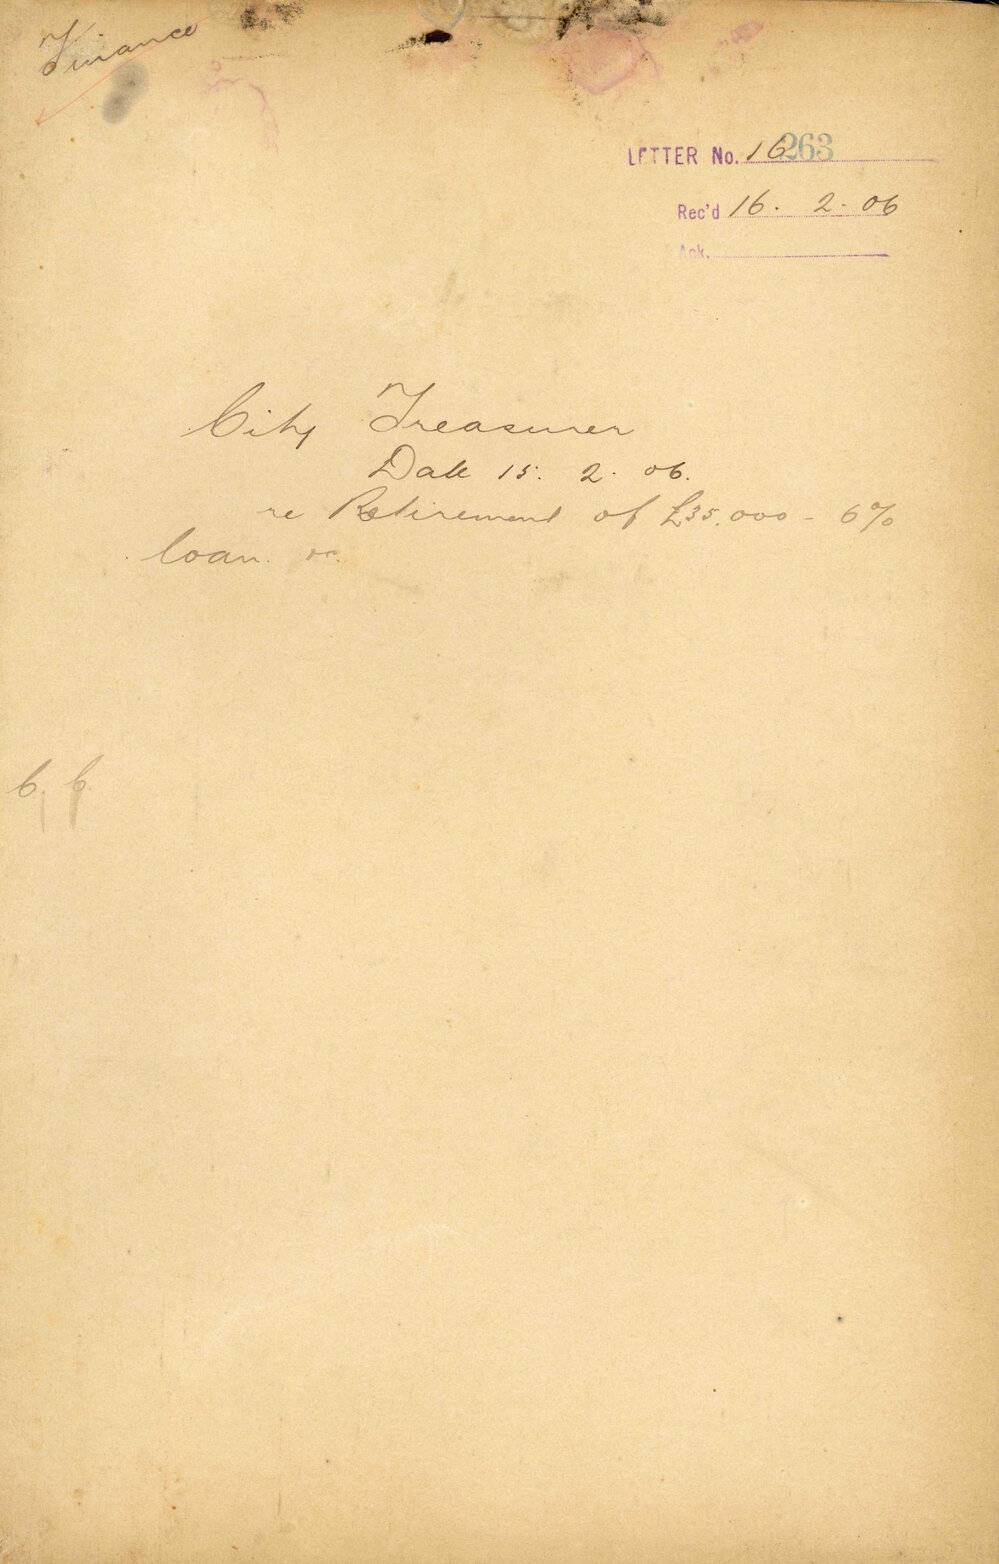 Finance
LETTER No. 16263
Rec'd 16. 2. 06
Ack.
City Treasurer
Date 15. 2. 06.
re Retirement of £35,000 - 6%
loan. &c.